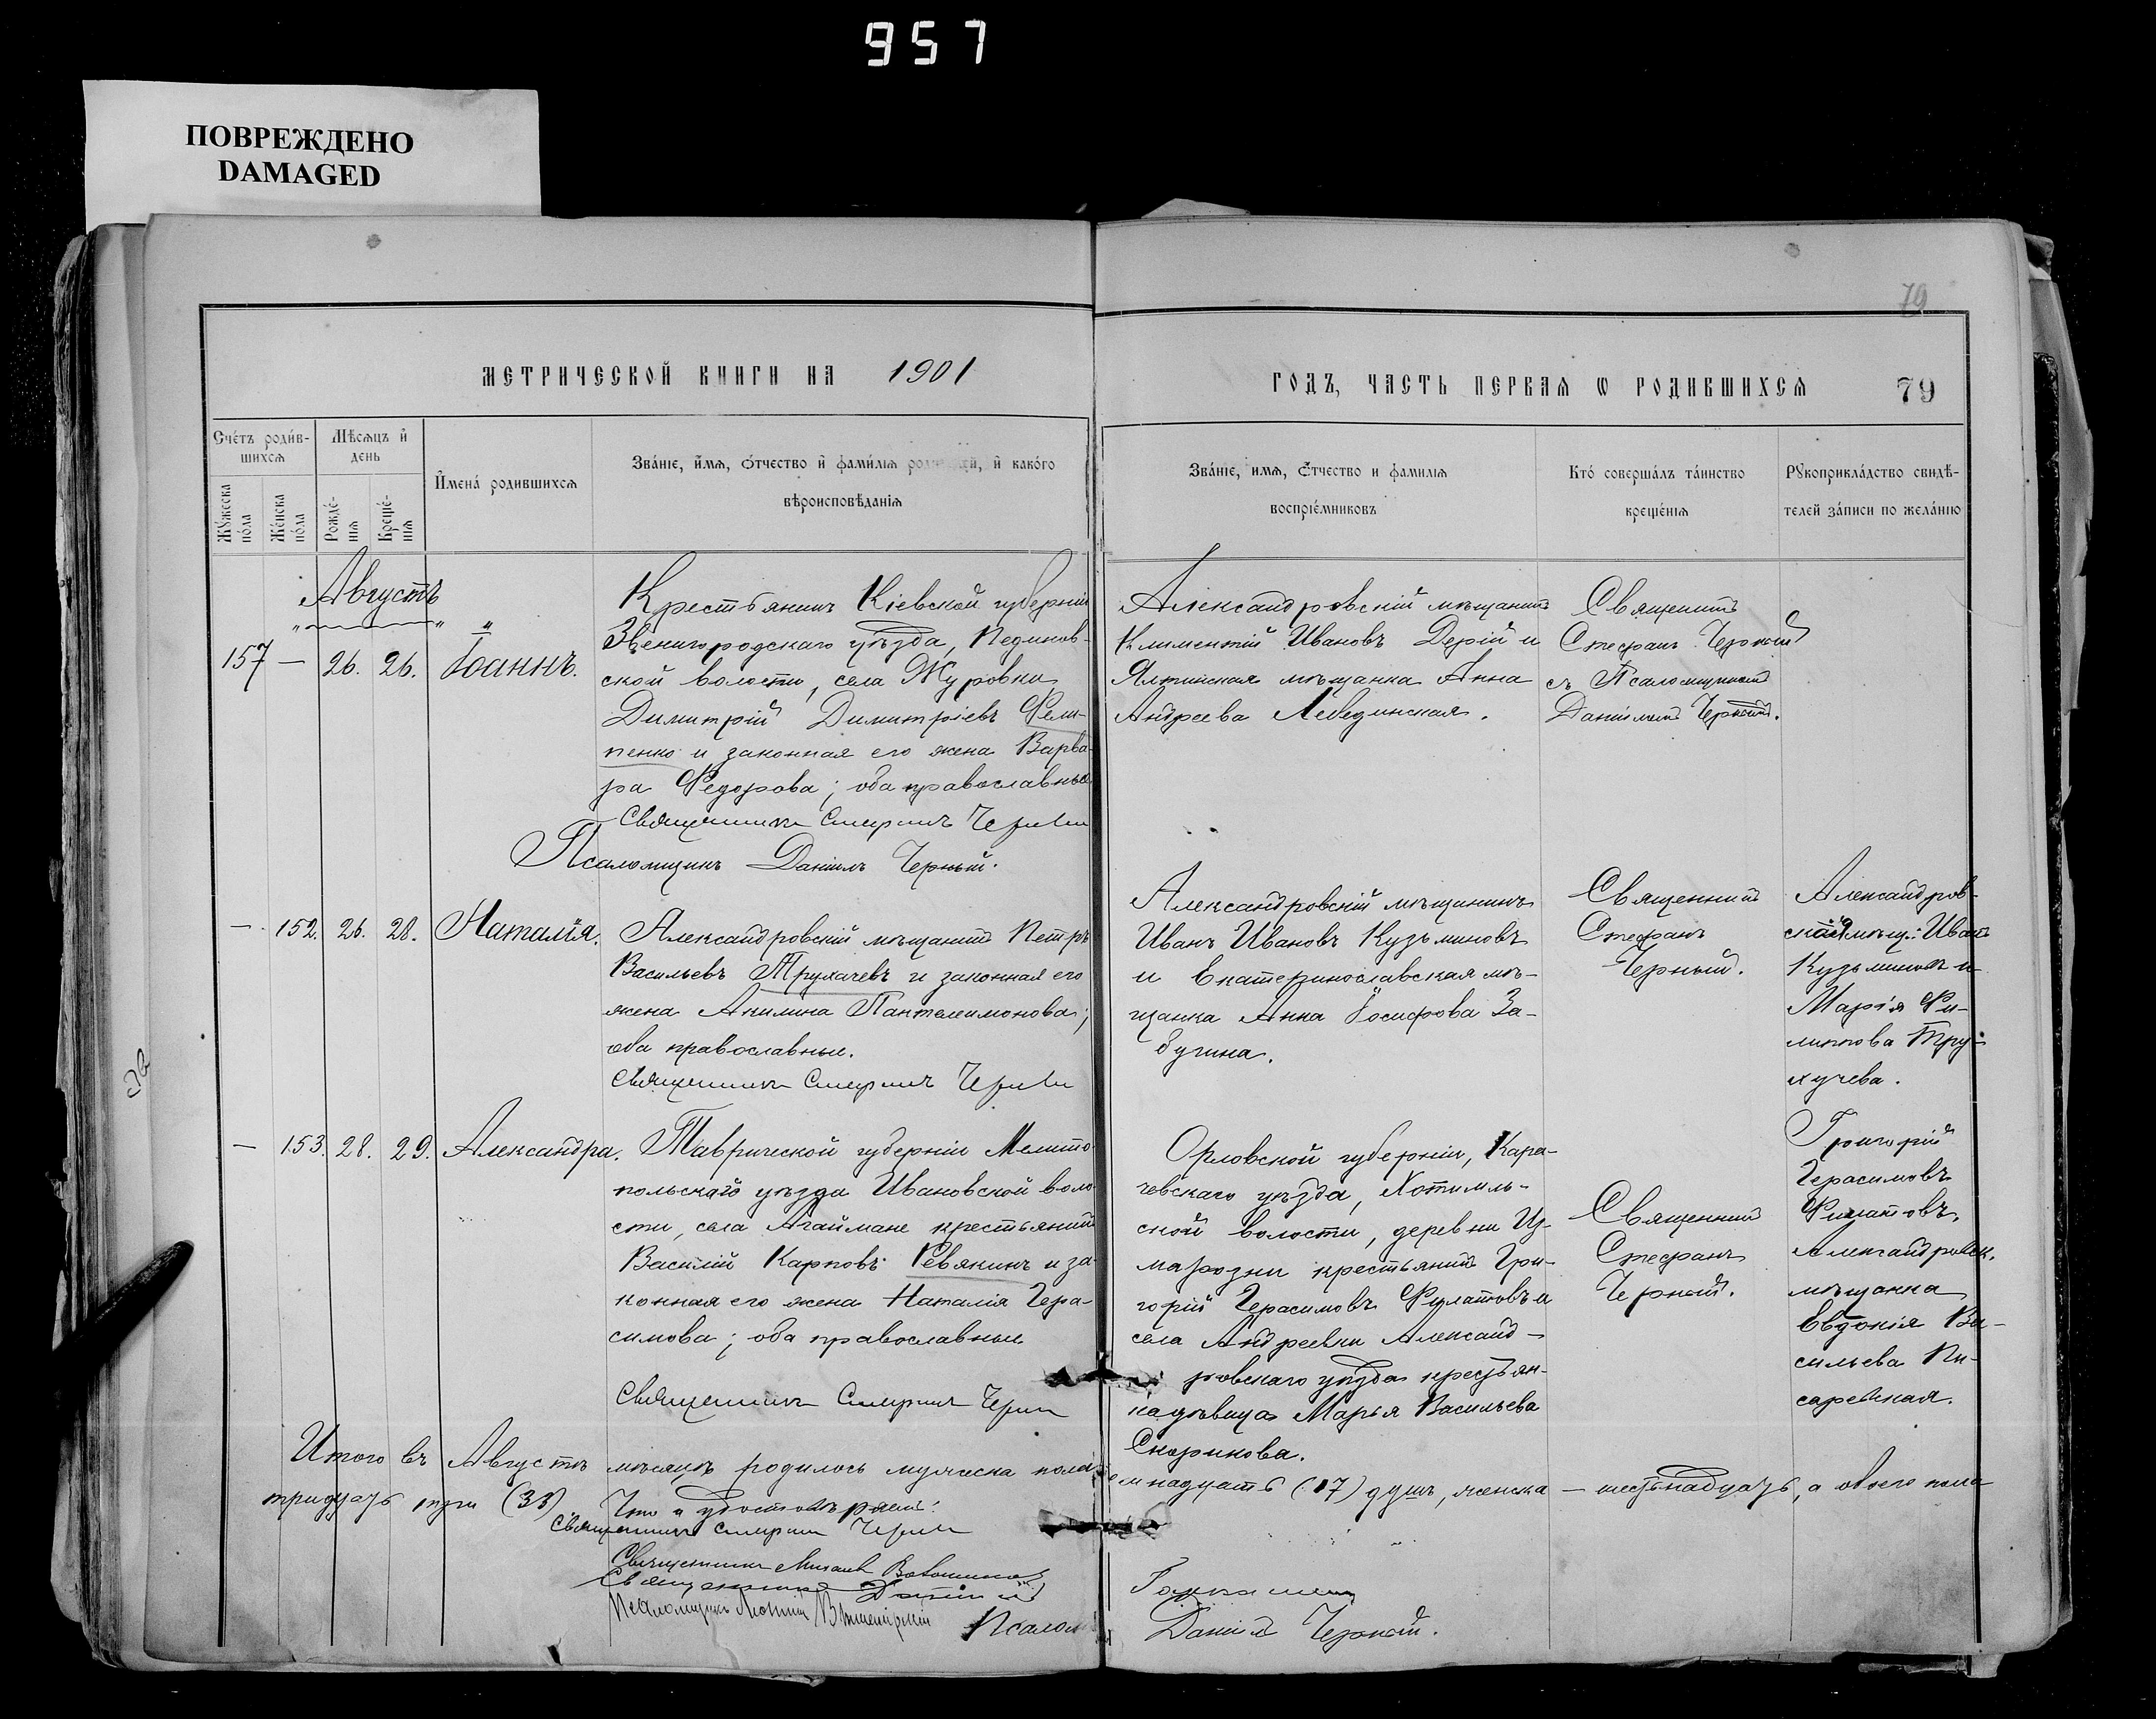 957
ПОВРЕЖДЕНО
DAMAGED
79
МЕТРИЧЕСКОЙ КНИГИ НА 1901
ГОДЪ, ЧАСТЬ ПЕРВАЯ Ѡ РОДИВШИХСЯ 79
Счетъ родив-
шихся
Мужеска пола
Женска пола
Мѣсяцъ и
день
Рожде-
нія
Креще-
нія
Имена родившихся
Званіе, имя, отчество и фамилія родителей, и какого
вѣроисповѣданія
Званіе, имя, отчество и фамилія
воспріемниковъ
Кто совершалъ таинство
крещенія
Рукоприкладство свидѣ-
телей записи по желанію
Августъ
157 — 26. 26. Іоаннъ.
Крестьянинъ Кіевской губерніи
Звенигородскаго уѣзда,
ской волости, села Журовки
Димитрій Димитріевъ Фели-
пенко и законная его жена Варва-
ра Федорова; оба православные
Священникъ Стефанъ Черный
Псаломщикъ Даніилъ Черный.
Александровскій мѣщанинъ
Климентій Ивановъ Дерій и
Ялтинская мѣщанка Анна
Андреева Лебединская.
Священникъ
Стефанъ Черный
съ Псаломщикомъ
Даніиломъ Чернымъ.
— 152. 26. 28. Наталія.
Александровскій мѣщанинъ Петръ
Васильевъ Трухачевъ и законная его
жена Акилина Пантелеимонова;
оба православные.
Священникъ Стефанъ Черный
Александровскій мѣщининъ
Иванъ Ивановъ Кузьминовъ
и Екатеринославская мѣ-
щанка Анна Іосифова За-
бугина.
Священникъ
Стефанъ
Черный.
Александров-
скій мѣщ.: Иванъ
Кузьминовъ и
Марія Фи-
липпова Тру-
хучева.
— 153. 28. 29. Александра.
Таврической губерніи Мелито-
польскаго уѣзда Ивановской воло-
сти, села Агаймане крестьянинъ
Василій Карповъ Ревякинъ и за-
конная его жена Наталія Гера-
симова; оба православные
Священникъ Стефанъ Черный
Орловской губерніи, Кара-
чевскаго уѣзда, Хотимль-
ской волости, деревни
крестьянинъ Гри-
горій Герасимовъ Филатовъ и
села Андреевки Александ-
ровскаго уѣзда крестьян-
ка дѣвица Марья Васильева
Скорикова.
Священникъ
Стефанъ
Черный.
Григорій
Герасимовъ
Филатовъ,
Александровск.
мѣщанка
Евдокія Ва-
сильева Пи-
саревская.
Итого въ Августѣ мѣсяцѣ родилось мужеска пола семнадцать (17) душъ, женска — шестьнадцать, а обоего пола
тридцать три (33)
Что и удостовѣряемъ:
Священникъ Стефанъ Черный
Священникъ Михаилъ
Священникъ
Псаломщикъ
Псаломщикъ Даніилъ Черный.